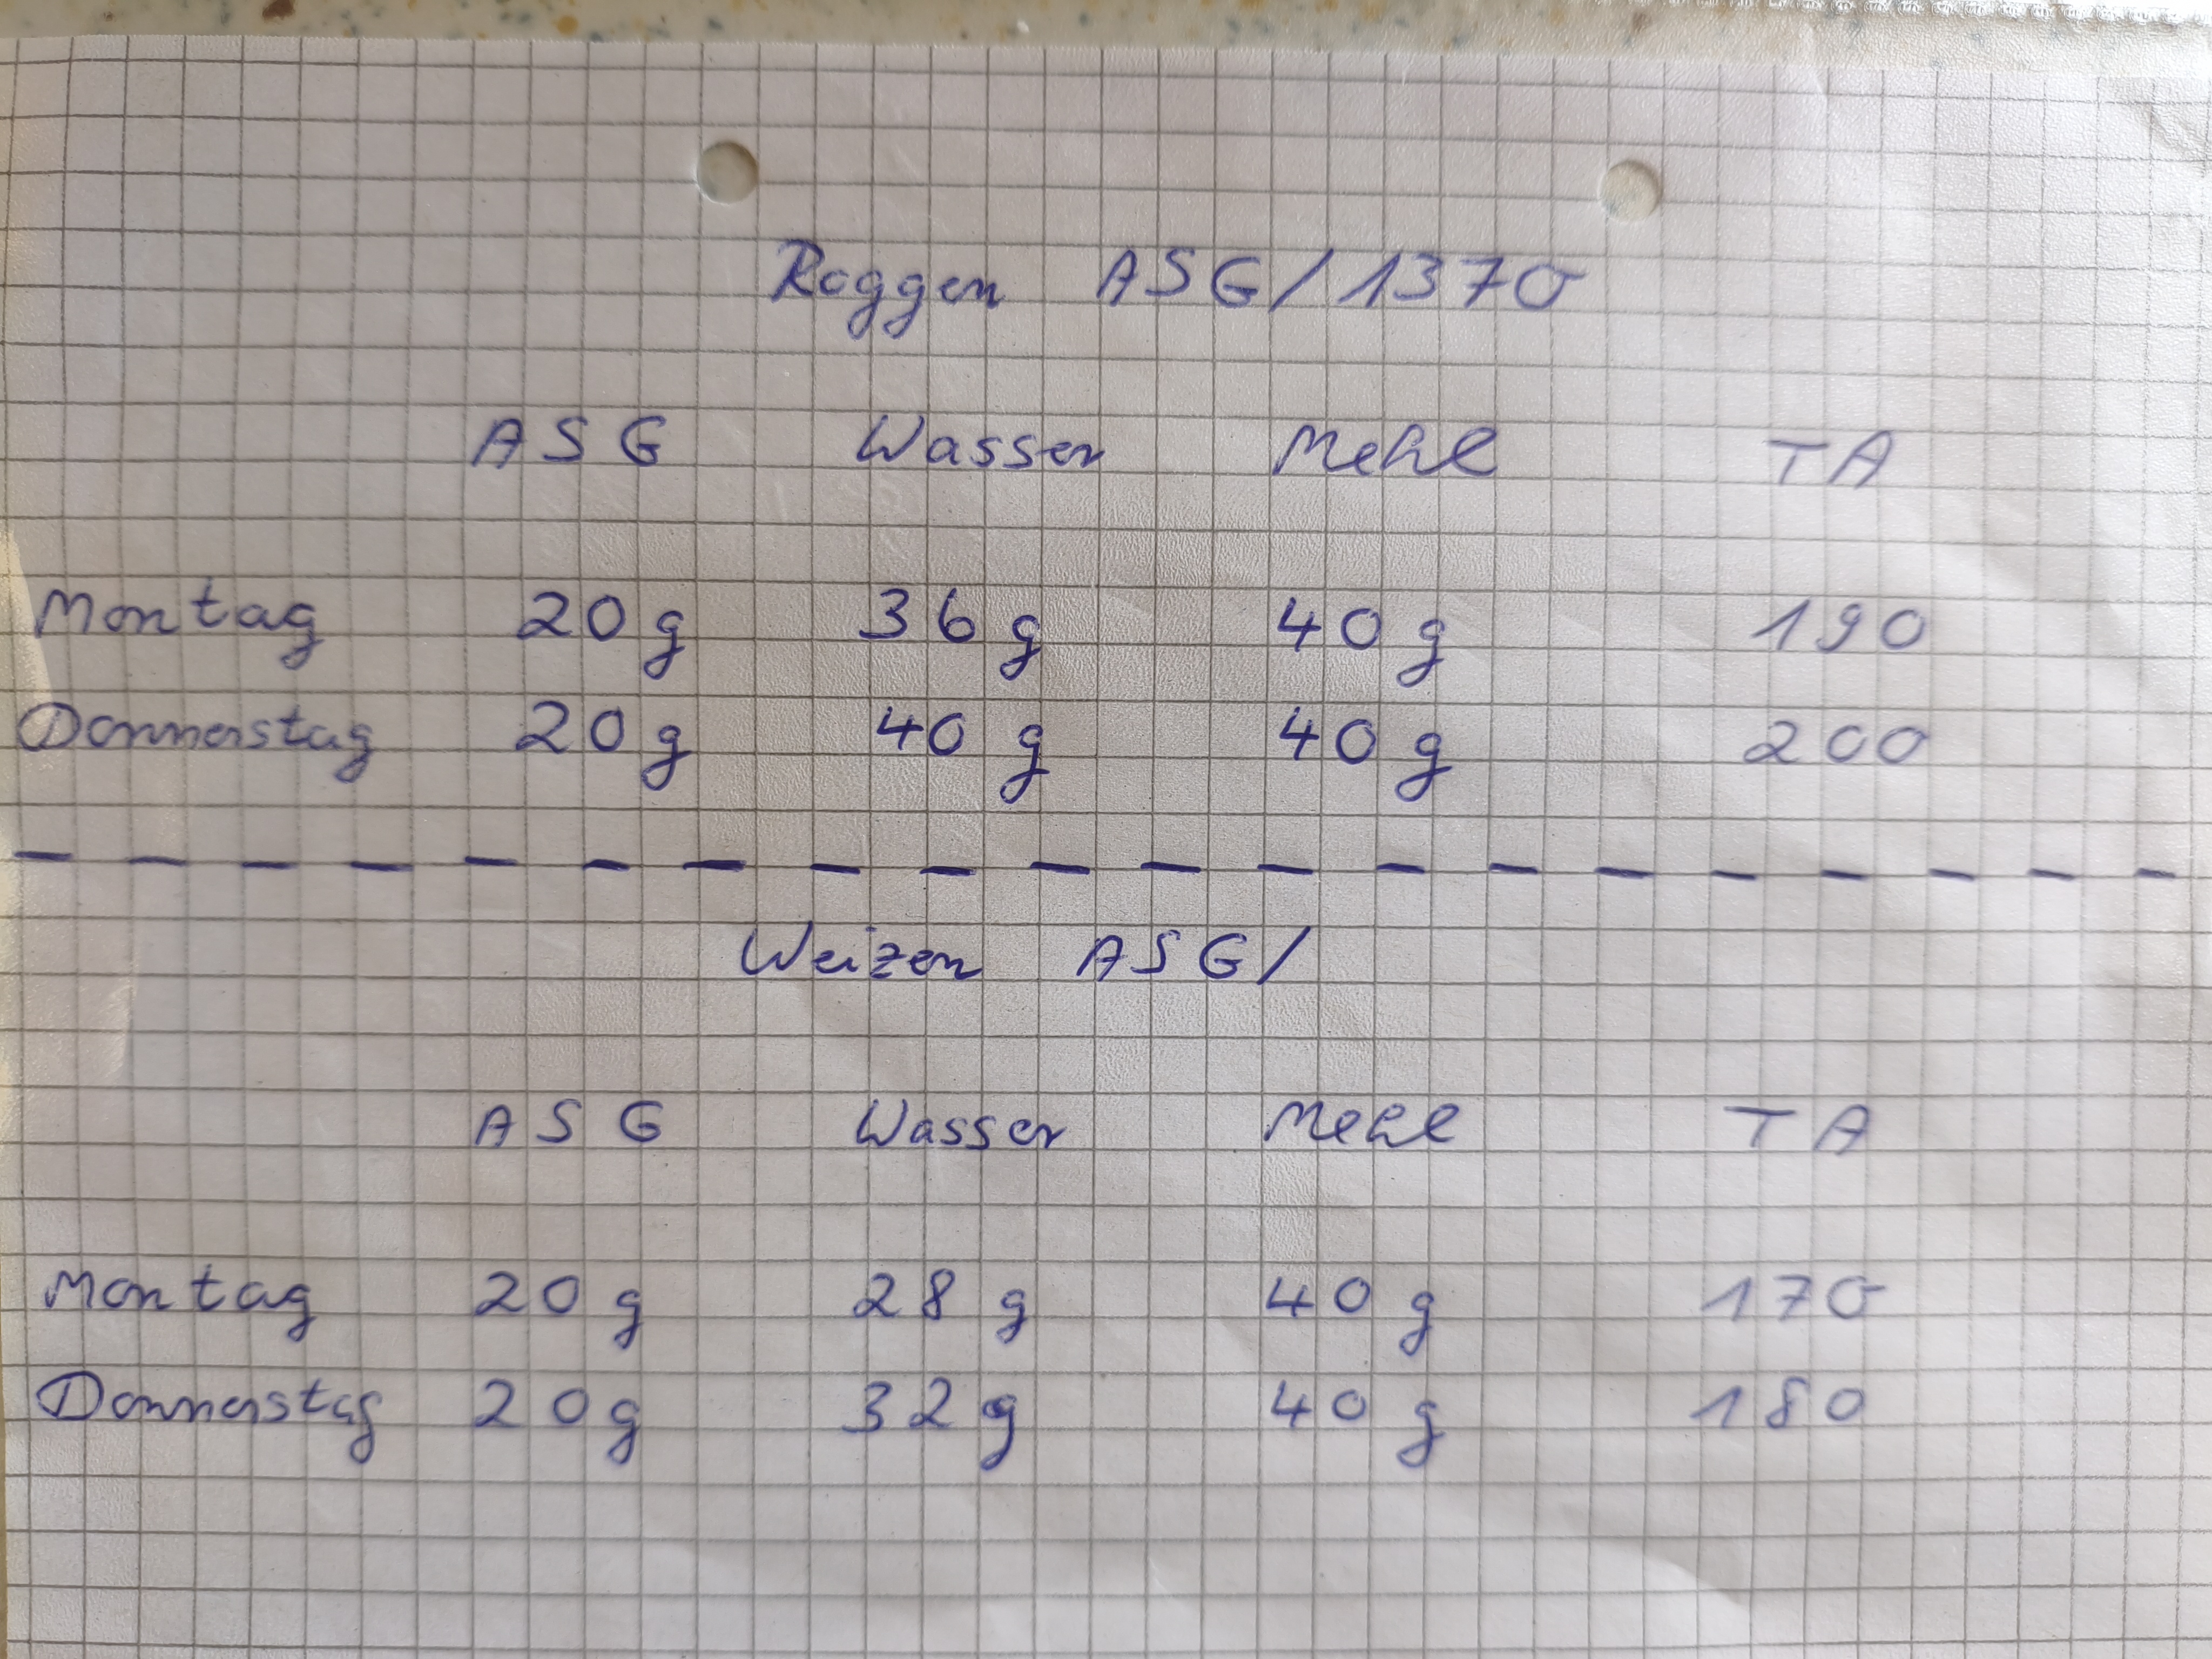 Roggen ASG/1370
ASG Wasser Mehl TA
Montag 20 g 36 g 40 g 190
Donnerstag 20 g 40 g 40 g 200
Weizen ASG/
ASG Wasser Mehl TA
Montag 20 g 28 g 40 g 170
Donnerstag 20 g 32 g 40 g 180